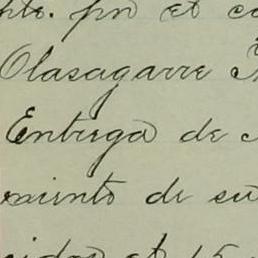 hte. pr et co
Olasagarre
Entrega de
miento de su
cidos et 15